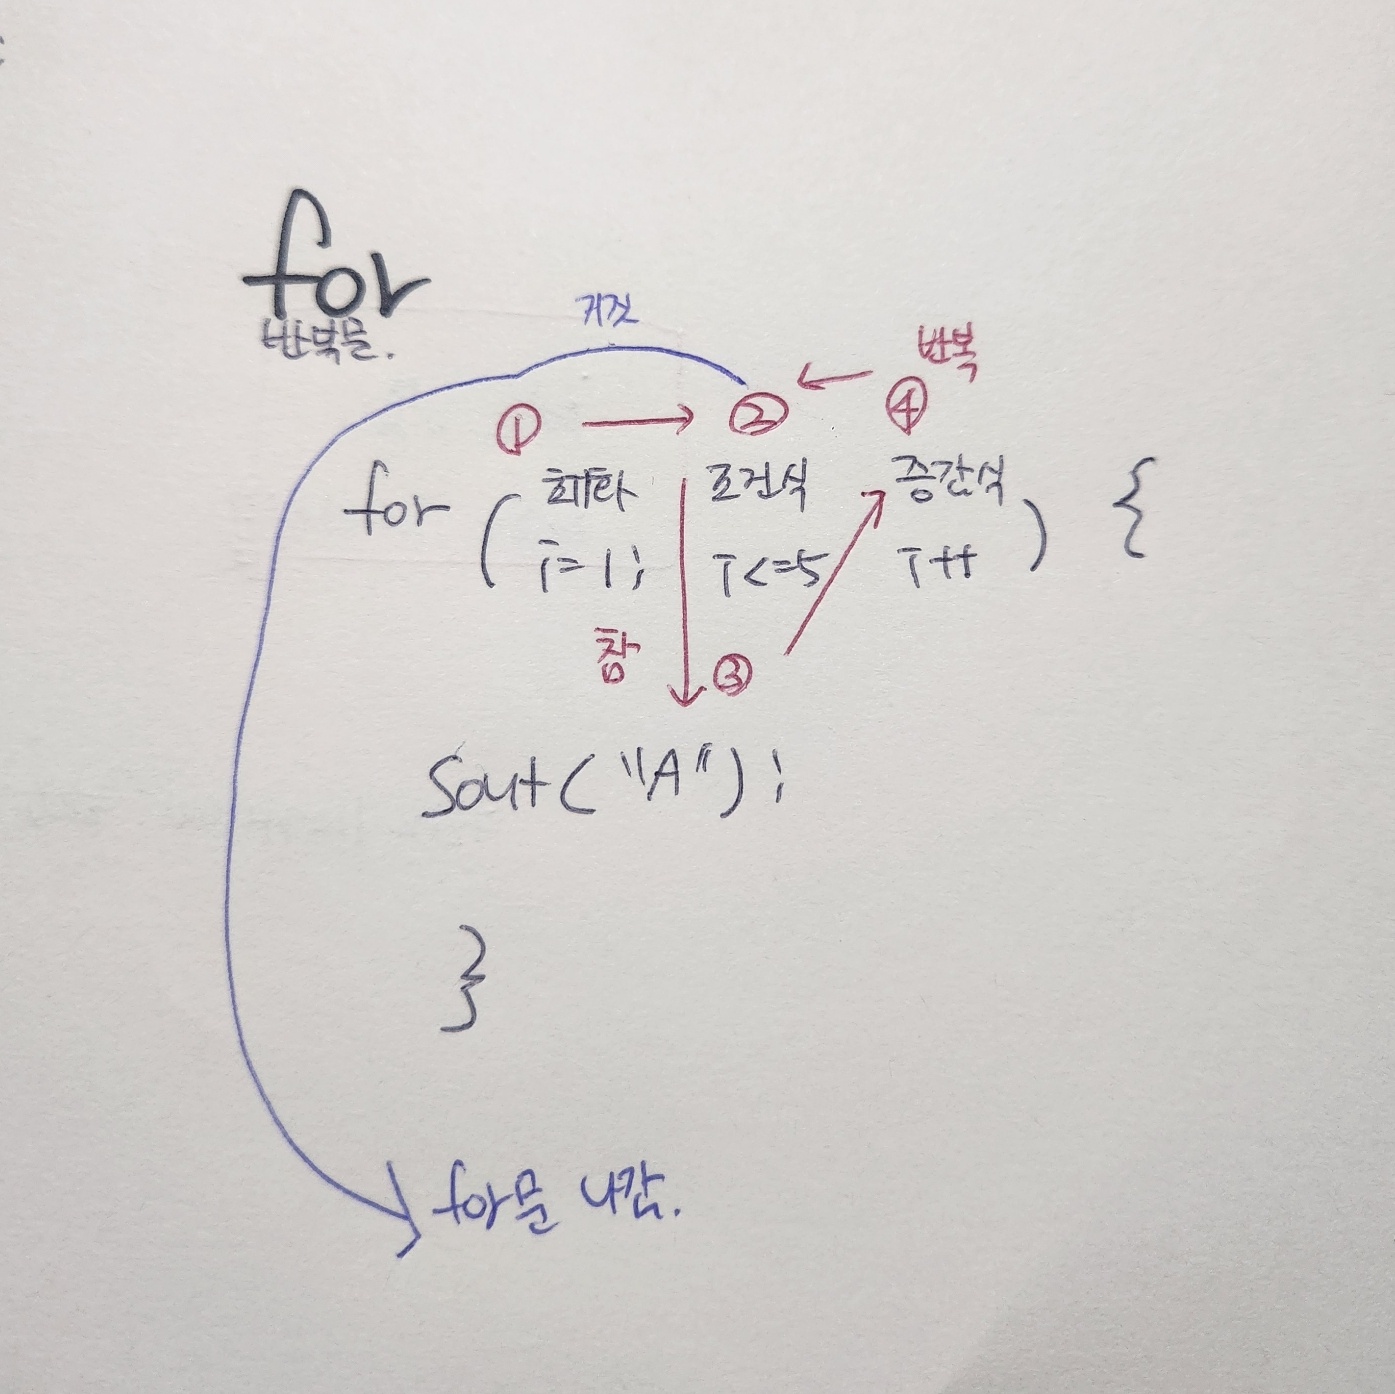 for
반복문.
거짓
반복
① → ② ← ④
for ( 초기화 조건식 증감식 ) {
i=1; i<=5 i++
참 ③
Sout("A");
}
for문 나감.